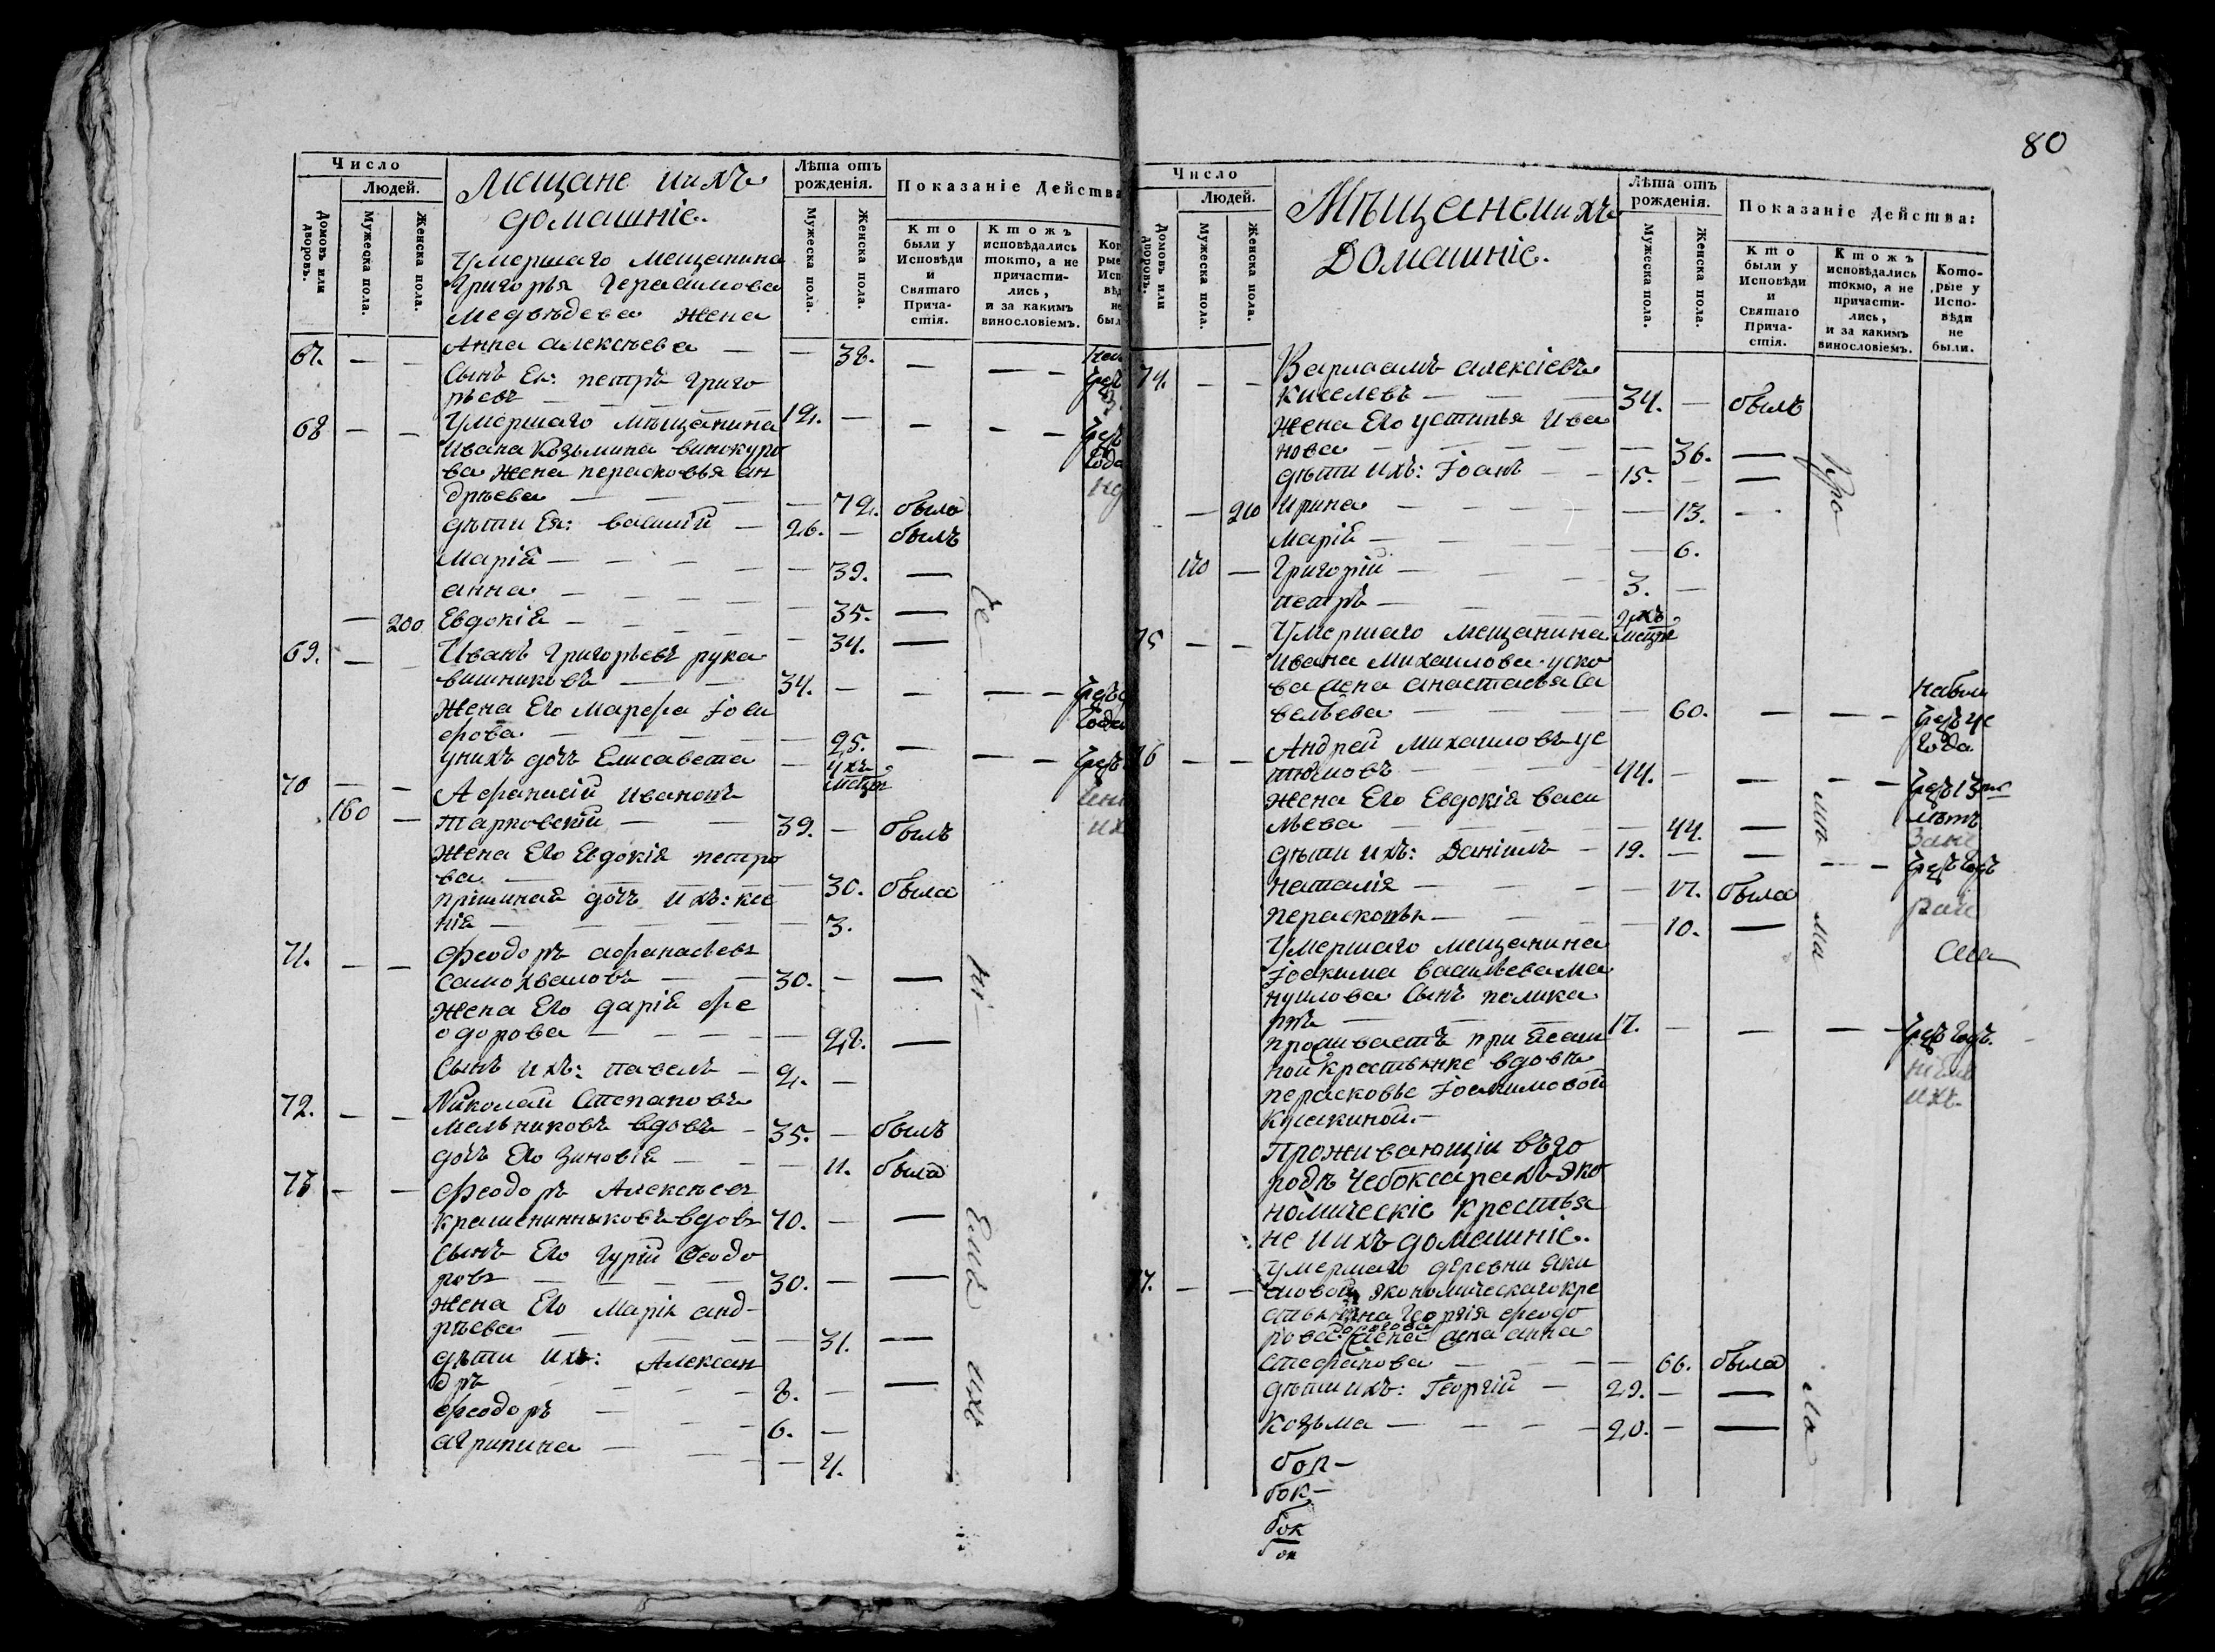 80
Число
Людей.
Домовъ или дворовъ.
Мужеска пола.
Женска пола.
Мещане ихъ
домашніе.
Лѣта отъ рожденія.
Мужеска пола.
Женска пола.
Показаніе Действа
Кто были у Исповѣди и Святаго Причастія.
Ктожъ исповѣдались токмо, а не причастились, и за какимъ винословіемъ.
Умершаго мещанина
Григорья Герасимова
медвѣдева жена
67. — — Анна алексѣева — — 38. — —
Сынъ Ея: петръ Григо
рьевъ — 12. — — —
68 — — Умершаго мѣщанина
Ивана Козьмина винокуро
ва жена парасковья ан
дрѣева — — 72. была
дѣти Ея: василій — 26. — былъ
Марія — — 39. —
анна — — 35. —
— 200 Евдокія — — 34. —
69. — — Иванъ Григорьевъ рука
вишниковъ — 34. — — —
Жена Его Марефа Іоси
фова — — 25. — —
унихъ дочь Елисавета —
70 — — Афанасій ивановъ
160 — Тарповскій — 39. — былъ
Жена Его Евдокія петро
ва — — 30. была
нія — — 3.
71. — — Феодоръ афанасьевъ
Самохваловъ — 30. — —
Жена Его дарія фе
одорова — — 28. —
Сынъ ихъ: павелъ — 2. —
72. — — Николай Степановъ
Мельниковъ вдовъ — 35. — былъ
дочь Его Зиновія — — 11. была
73 — — Феодоръ Алексѣевъ
Крашенинниковъ вдовъ 70. — —
Сынъ Его Гурій Феодо
ровъ — 30. — —
Жена Его Марія анд-
рѣева — — 31. —
дѣти ихъ: Алексан
дръ — 8. — —
Феодоръ — 6. —
агрипина — — 4.
Число
Людей.
Домовъ или дворовъ.
Мужеска пола.
Женска пола.
Мѣщане ихъ
Домашніе.
Лѣта отъ рожденія.
Мужеска пола.
Женска пола.
Показаніе Действа:
Кто были у Исповѣди и Святаго Причастія.
Ктожъ исповѣдались токмо, а не причастились, и за какимъ винословіемъ.
Которые у Исповѣди не были.
74. — — Варлаамъ алексіевъ
Киселевъ — 34. — былъ
Жена Его устинья Ива
нова — — 36. —
дѣти ихъ: Іоанъ — 15. — —
— 210 Ирина — — 13. —
Марія — — 6.
170 — Григорій — 3. —
петръ —
75 — — Умершаго мещанина
Ивана Михаилова уско
ва жена анастасья Са
вельева — — 60. — —
76 — — Андрей михаиловъ ус
тюмовъ — 44. — — —
Жена Его Евдокія васи
льева — — 44. —
дѣти ихъ: Даніилъ — 19. — — —
Наталія — — 17. была
Парасковья — — 10. —
Умершаго мещанина
Іоакима васильева ма
нуилова Сынъ полика
рпъ — 17. — — —
ной крестьянке вдовѣ
парасковье Іоакимовой
Проживающіи въ го
родѣ Чебоксарахъ эко
номическіе Крестья
не ихъ домашніе.
77. — — Умершаго деревни яки
мовой экономическаго кре
стьянина Георгія феодо
рова жена анна
Стефанова — — 66. была
дѣти ихъ: Георгій — 29. — —
Козьма — 20. — —
бок-
бок-
бок